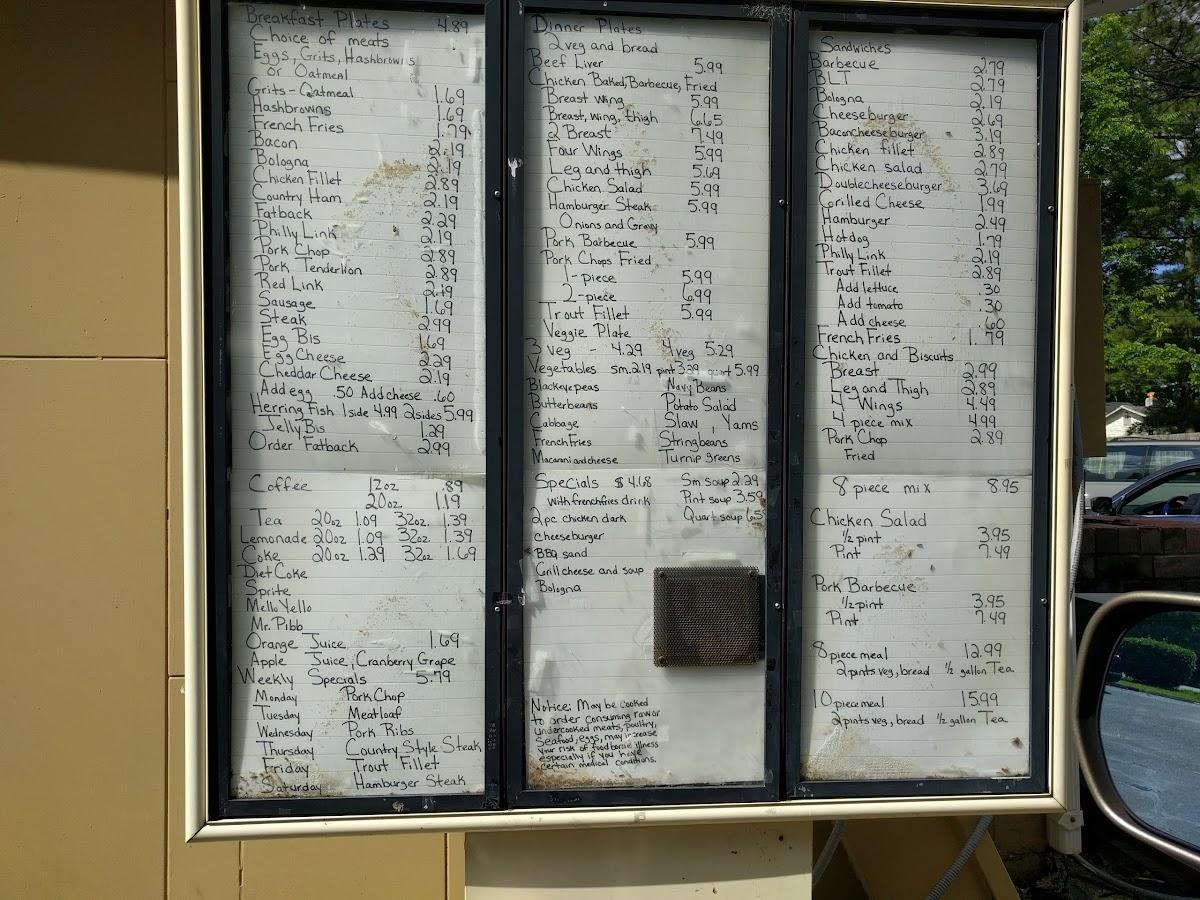 Breakfast Plates 4.89
Choice of meats
Eggs, Grits, Hashbrowns
or Oatmeal
Grits - Oatmeal 1.69
Hashbrowns 1.69
French Fries 1.79
Bacon 2.19
Bologna 2.19
Chicken Fillet 2.89
Country Ham 2.19
Fatback 2.29
Philly Link 2.19
Pork Chop 2.89
Pork Tenderlion 2.89
Red Link 2.19
Sausage 1.69
Steak 2.99
Egg Bis 1.69
Egg Cheese 2.29
Cheddar Cheese 2.19
Add egg .50 Add cheese .60
Herring Fish 1 side 4.99 2 sides 5.99
Jelly Bis 1.29
Order Fatback 2.99
Coffee 12oz .89
20oz 1.19
Tea 20oz 1.09 32oz. 1.39
Lemonade 20oz 1.09 32oz. 1.39
Coke 20oz 1.29 32oz 1.69
Diet Coke
Sprite
Mello Yello
Mr. Pibb
Orange Juice 1.69
Apple Juice, Cranberry Grape
Weekly Specials 5.79
Monday Pork Chop
Tuesday Meatloaf
Wednesday Pork Ribs
Thursday Country Style Steak
Friday Trout Fillet
Saturday Hamburger Steak
Dinner Plates
2 veg and bread
Beef Liver 5.99
Chicken Baked, Barbecue, Fried
Breast wing 5.99
Breast, wing, thigh 6.65
2 Breast 7.49
Four Wings 5.99
Leg and thigh 5.69
Chicken Salad 5.99
Hamburger Steak 5.99
Onions and Gravy
Pork Barbecue 5.99
Pork Chops Fried
1-piece 5.99
2-piece 6.99
Trout Fillet 5.99
Veggie Plate
3 veg - 4.29 4 veg 5.29
Vegetables sm. 2.19 pint 3.29 quart 5.99
Blackeye peas Navy Beans
Butterbeans Potato Salad
Cabbage Slaw, Yams
French Fries Stringbeans
Macaroni and cheese Turnip greens
Specials $4.68 Sm soup 2.29
with frenchfries drink Pint soup 3.59
2pc chicken dark Quart soup
cheeseburger
BBQ sand
Grill cheese and soup
Bologna
Notice: May be cooked
to order consuming raw or
undercooked meats, poultry,
Seafood, eggs, may increase
your risk of foodborne illness
especially if you have
certain medical conditions.
Sandwiches
Barbecue 2.79
BLT 2.79
Bologna 2.19
Cheeseburger 2.69
Baconcheeseburger 3.19
Chicken fillet 2.89
Chicken salad 2.79
Doublecheeseburger 3.69
Grilled Cheese 1.99
Hamburger 2.49
Hotdog 1.79
Philly Link 2.19
Trout Fillet 2.89
Add lettuce .30
Add tomato .30
Add cheese .60
French Fries 1.79
Chicken and Biscuits
Breast 2.99
Leg and Thigh 2.89
4 Wings 4.49
4 piece mix 4.99
Pork Chop 2.89
Fried
8 piece mix 8.95
Chicken Salad
1/2 pint 3.95
Pint 7.49
Pork Barbecue
1/2 pint 3.95
Pint 7.49
8 piece meal 12.99
2 pints veg, bread 1/2 gallon Tea
10 piece meal 15.99
2 pints veg, bread 1/2 gallon Tea